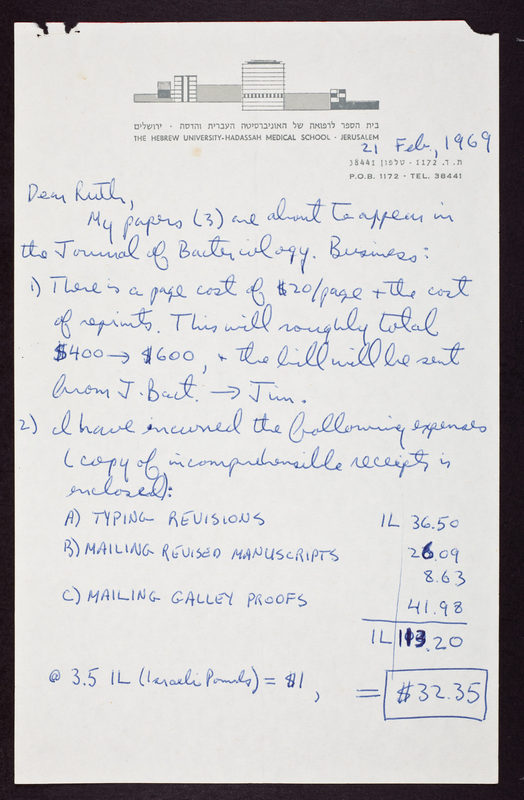 בית הספר לרפואה של האוניברסיטה העברית והדסה · ירושלים
THE HEBREW UNIVERSITY-HADASSAH MEDICAL SCHOOL · JERUSALEM
21 Feb, 1969
ת. ד. 1172 · טלפון 38441
P.O.B. 1172 · TEL. 38441
Dear Ruth,
My papers (3) are about to appear in
the Journal of Bacteriology. Business:
1) There is a page cost of $20/page + the cost
of reprints. This will roughly total
$400 → $600, + the bill will be sent
from J. Bact. → Jim.
2) I have incurred the following expenses
(copy of incomprehensible receipts is
enclosed):
A) TYPING REVISIONS IL 36.50
B) MAILING REVISED MANUSCRIPTS 26.09
8.63
C) MAILING GALLEY PROOFS 41.98
IL 113.20
@ 3.5 IL (Israeli Pounds) = $1, = $32.35